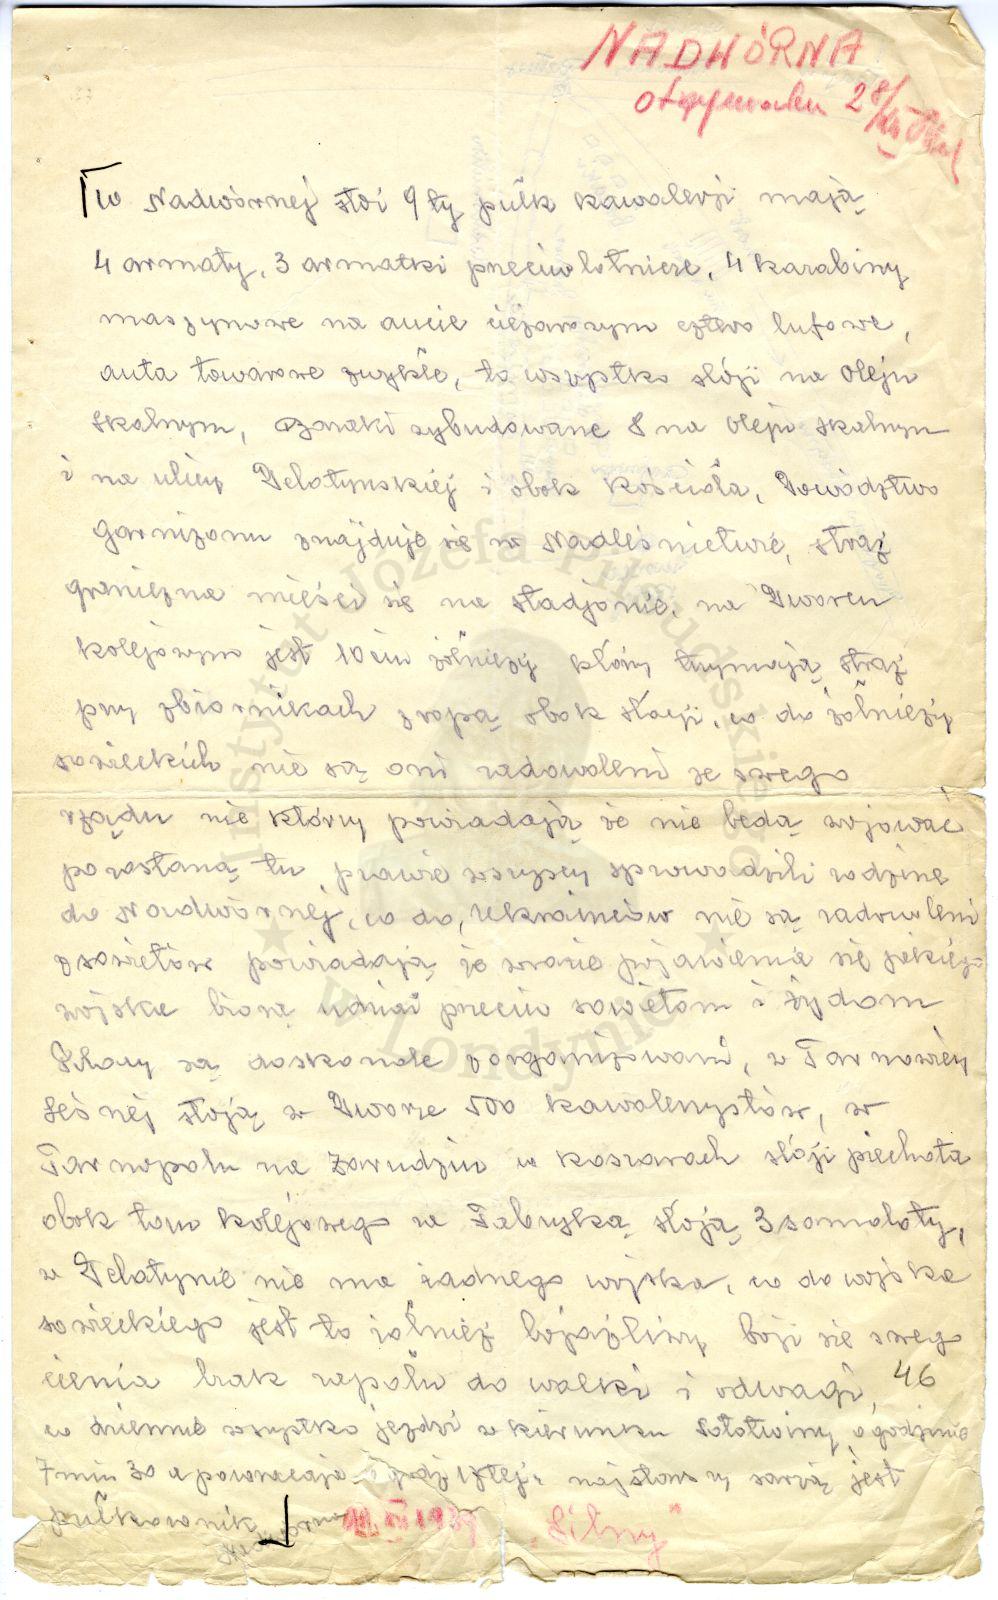 NADWÓRNA
otrzymałem 28/XII
w Nadwórnej stoi 9ty pułk kawalerji mają
4 armaty, 3 armatki przeciwlotnicze, 4 karabiny
maszynowe na aucie ciężarowym cztero lufowe,
auta towarowe zwykłe, to wszystko stóji na oleju
skalnym, baraki wybudowane 8 na oleju skalnym
i na ulicy Delatyńskiej i obok kościoła, Dowództwo
Garnizonu znajduje się w Nadleśnictwie, straż
graniczna mieści się na stadjonie, na Dworcu
kolejowym jest 10ciu żołnieży którzy trzymają straż
przy zbiornikach z ropą obok stacji, co do żołnieży
sowieckich nie są oni zadowoleni ze swego
rządu nie którzy powiadają że nie będą wojować
pozostaną tu prawie wszyscy sprowadzili rodzine
do Nadwórnej, co do, Ukraińców nie są zadowleni
z sowietów powiadają że wrazie pojawienia się jakiego
wojska biorą udział przeciw sowietom i żydom
są doskonale zorganizowani, w Tarnowicy
Leśnej stoją w Dworze 500 kawalerzystów, w
Tarnopolu na Zarudziu w koszarach stóji piechota
obok toru kolejowego za Fabryką stoją 3 samoloty,
w Delatynie nie ma żadnego wojska, co do wojska
sowieckiego jest to żołnież bojaźliwy boji się swego
cienia brak zapału do walki i odwagi, 46
co dziennie wszystko jeździ w kierunku Sołotwiny o godzinie
7 min 30 a powracają o godz najstarszy szarżą jest
pułkownik
XII 1939 "Silny"
Instytut Józefa Piłsudskiego
w Londynie